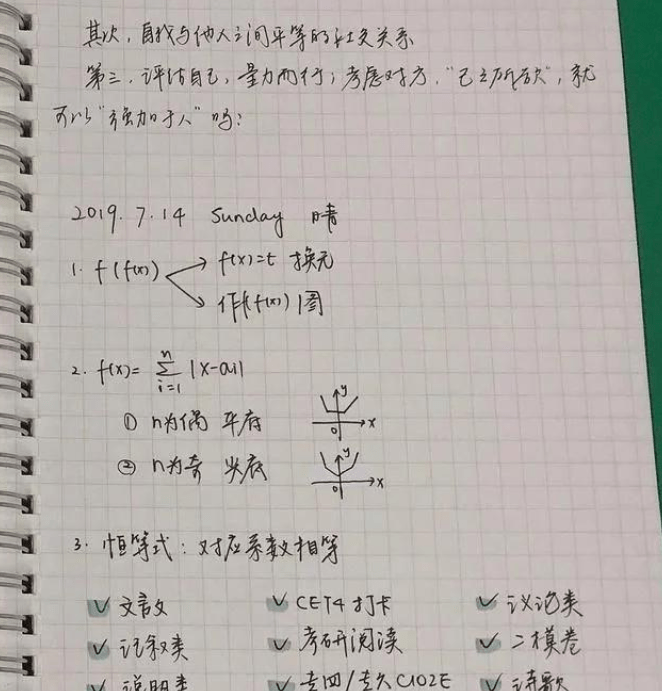 其次，自我与他人之间平等的社交关系
第三，评估自己，量力而行；考虑对方，"己之所欲"，就
可以"强加于人"吗？
2019.7.14 Sunday 晴
1. f(f(x))
f(x)=t 换元
作f(f(x))图
2. f(x)= n∑i=1 |x-ai|
① n为偶 平底 y 0 x
② n为奇 尖底 y 0 x
3. 恒等式：对应系数相等
✓ 文言文 ✓ CET4打卡 ✓ 议论类
✓ 记叙类 ✓ 考研阅读 ✓ 二模卷
✓ 说明类 ✓ 专四/专八 ✓ 诗歌